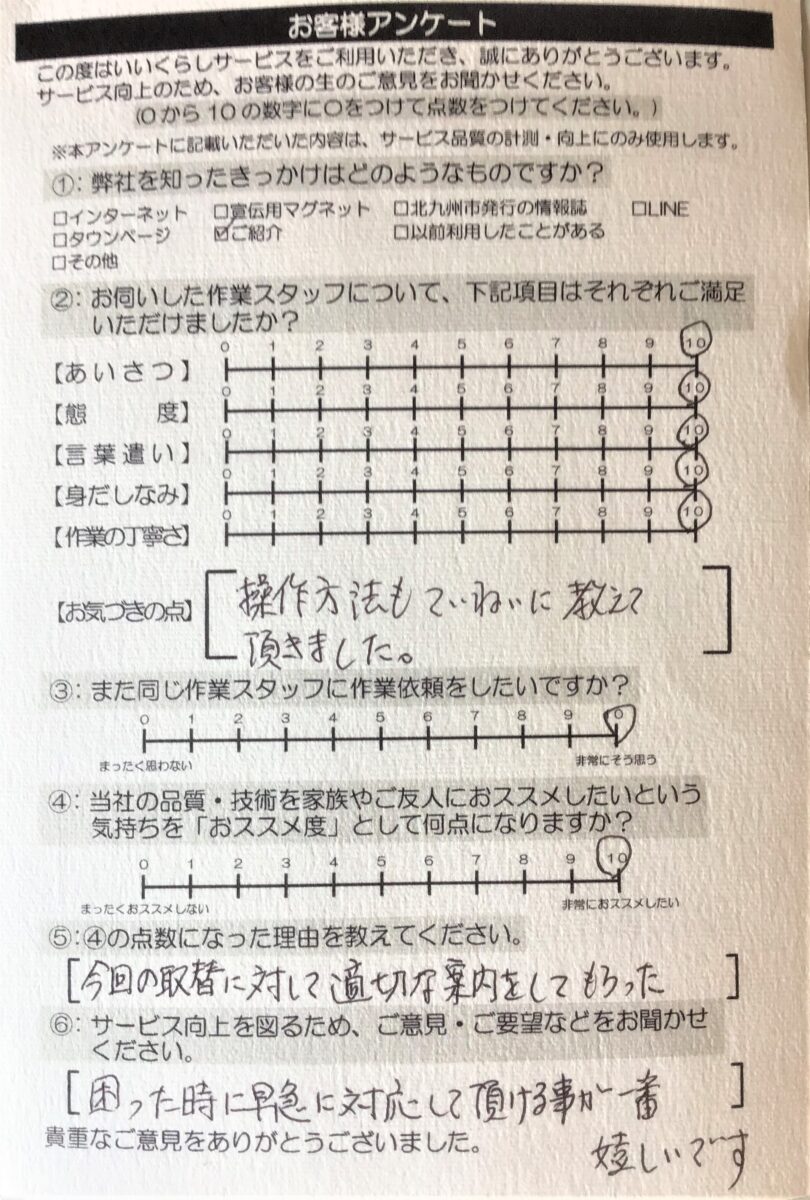 お客様アンケート
この度はいいくらしサービスをご利用いただき、誠にありがとうございます。
サービス向上のため、お客様の生のご意見をお聞かせください。
(0から10の数字に〇をつけて点数をつけてください。)
※本アンケートに記載いただいた内容は、サービス品質の計測・向上にのみ使用します。
①：弊社を知ったきっかけはどのようなものですか？
□インターネット □宣伝用マグネット □北九州市発行の情報誌 □LINE
□タウンページ ☑ご紹介 □以前利用したことがある
□その他
②：お伺いした作業スタッフについて、下記項目はそれぞれご満足
いただけましたか？
0 1 2 3 4 5 6 7 8 9 10
【あいさつ】
0 1 2 3 4 5 6 7 8 9 10
【態　度】
0 1 2 3 4 5 6 7 8 9 10
【言葉遣い】
0 1 2 3 4 5 6 7 8 9 10
【身だしなみ】
0 1 2 3 4 5 6 7 8 9 10
【作業の丁寧さ】
【お気づきの点】 操作方法もていねいに教えて
頂きました。
③：また同じ作業スタッフに作業依頼をしたいですか？
0 1 2 3 4 5 6 7 8 9 10
まったく思わない 非常にそう思う
④：当社の品質・技術を家族やご友人におススメしたいという
気持ちを「おススメ度」として何点になりますか？
0 1 2 3 4 5 6 7 8 9 10
まったくおススメしない 非常におススメしたい
⑤：④の点数になった理由を教えてください。
[今回の取替に対して適切な案内をしてもらった]
⑥：サービス向上を図るため、ご意見・ご要望などをお聞かせ
ください。
[困った時に早急に対応して頂ける事が一番]
嬉しいです
貴重なご意見をありがとうございました。